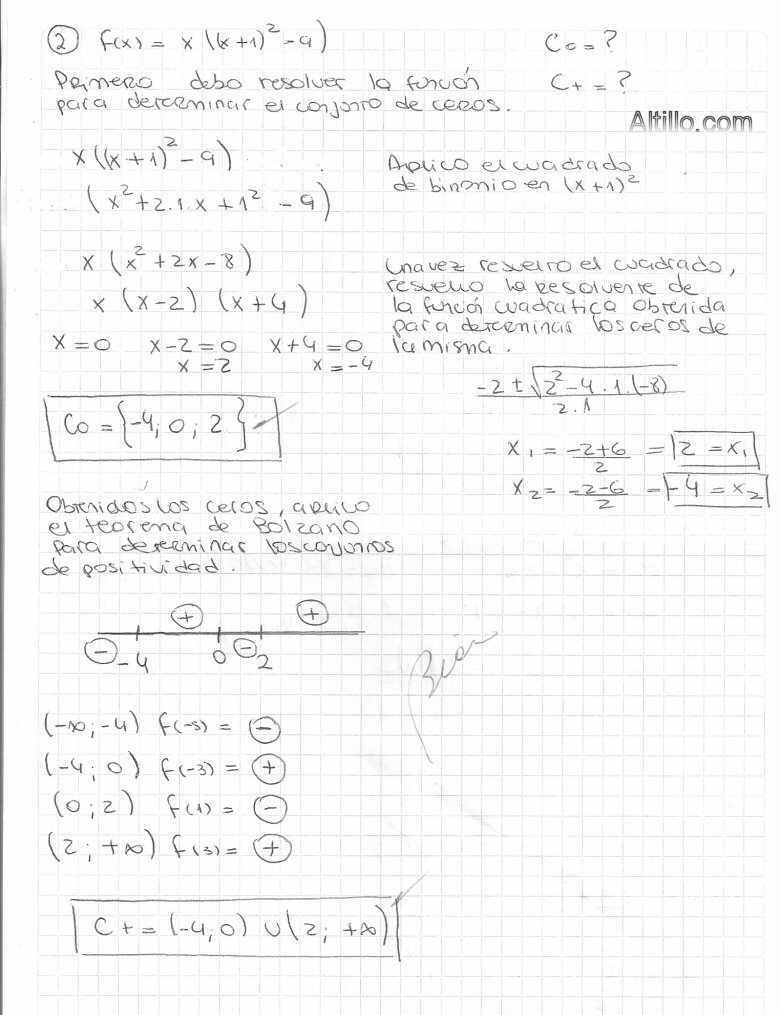 2 f(x) = x ((x+1)² - 9)
C0 = ?
Primero debo resolver la función
para determinar el conjunto de ceros.
C+ = ?
Altillo.com
x((x+1)² - 9)
(x² + 2.1.x + 1² - 9)
Aplico el cuadrado
de binomio en (x+1)²
x (x² + 2x - 8)
x (x-2) (x+4)
x = 0 x-2=0 x+4=0
x=2 x=-4
Una vez resuelto el cuadrado,
resuelvo la resolvente de
la función cuadratica obtenida
para determinar los ceros de
la misma.
C0 = {-4; 0; 2}
-2 ± √2² - 4.1.(-8)
2.1
x1 = -2+6 = 2 = x1
2
x2 = -2-6 = -4 = x2
2
Obtenidos los ceros, aplico
el teorema de Bolzano
para determinar los conjuntos
de positividad.
+ +
- -4 0 - 2
Bien
(-∞; -4) f(-5) = -
(-4; 0) f(-3) = +
(0; 2) f(1) = -
(2; +∞) f(3) = +
C+ = (-4; 0) ∪ (2; +∞)